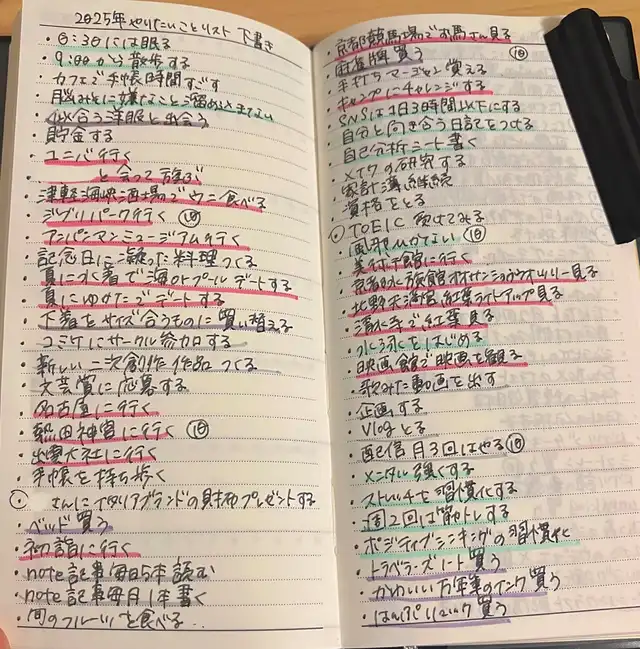 2025年 やりたいことリスト 下書き
・0:30には眠る
・9:00から散歩する
・カフェで手帳時間すごす
・脳みそに嫌なこと溜めこまない
・似合う洋服と出会う
・貯金する
・ユニバ行く
・ と会って遊ぶ
・津軽海峡酒場でウニ食べる
・ジブリパーク行く
・アンパンマンミュージアム行く
・記念日に凝った料理つくる
・夏に水着で海かプールデートする
・夏にゆかたでデートする
・下着をサイズ合うものに買い替える
・コミケにサークル参加する
・新しい二次創作作品つくる
・文芸賞に応募する
・名古屋に行く
・熱田神宮に行く
・出雲大社に行く
・手帳を持ち歩く
・ さんにイタリアブランドの財布プレゼントする
・ベッド買う
・初詣に行く
・note記事毎日5本読む
・note記事毎月1本書く
・旬のフルーツを食べる
・京都競馬場でお馬さん見る
・麻雀牌買う
・手打ちマージャン覚える
・キャンプにチャレンジする
・SNSは1日3時間以下にする
・自分と向き合う日記をつける
・自己分析シート書く
・メイクの研究する
・家計簿継続
・資格をとる
・TOEIC受けてみる
・風邪ひかない
・美術館に行く
・京都水族館オオサンショウウオツリー見る
・北野天満宮紅葉ライトアップ見る
・清水寺で紅葉見る
・水泳をはじめる
・映画館で映画を観る
・歌みた動画を出す
・企画する
・Vlogとる
・配信月3回はやる
・メンタル強くする
・ストレッチを習慣化する
・週2回は筋トレする
・ポジティブシンキングの習慣化
・トラベラーズノート買う
・かわいい万年筆のインク買う
・はんぷ 買う